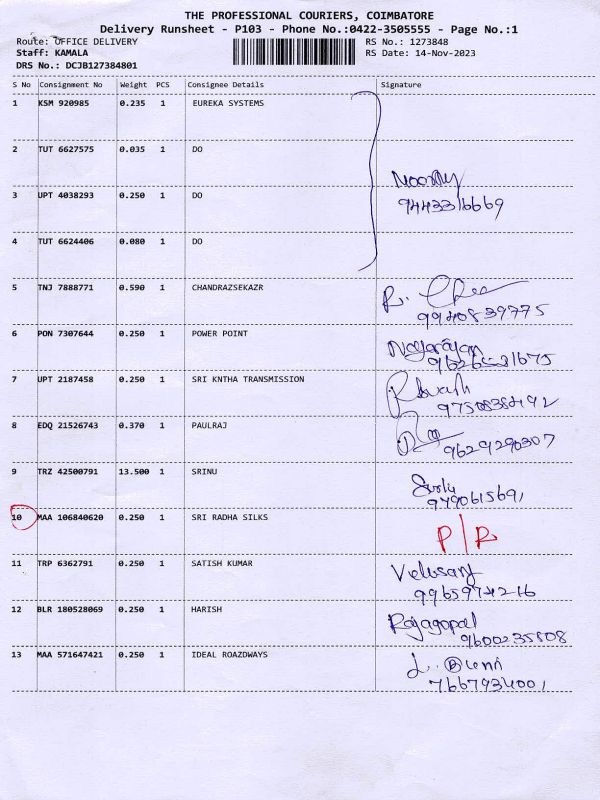 THE PROFESSIONAL COURIERS, COIMBATORE
Delivery Runsheet - P103 - Phone No.:0422-3505555 - Page No.:1
Route: OFFICE DELIVERY RS No.: 1273848
Staff: KAMALA RS Date: 14-Nov-2023
DRS No.: DCJB127384801
S No Consignment No Weight PCS Consignee Details Signature
1 KSM 920985 0.235 1 EUREKA SYSTEMS
2 TUT 6627575 0.035 1 DO
Moorthy
3 UPT 4038293 0.250 1 DO
9443316669
4 TUT 6624406 0.080 1 DO
5 TNJ 7888771 0.590 1 CHANDRAZSEKAZR
9940839775
6 PON 7307644 0.250 1 POWER POINT
Narayan
7 UPT 2187458 0.250 1 SRI KNTHA TRANSMISSION
8 EDQ 21526743 0.370 1 PAULRAJ
9629290307
9 TRZ 42500791 13.500 1 SRINU
10 MAA 106840620 0.250 1 SRI RADHA SILKS
P/R
11 TRP 6362791 0.250 1 SATISH KUMAR
9965974216
12 BLR 180528069 0.250 1 HARISH
Rajagopal
9600235808
13 MAA 571647421 0.250 1 IDEAL ROAZDWAYS
7667934001